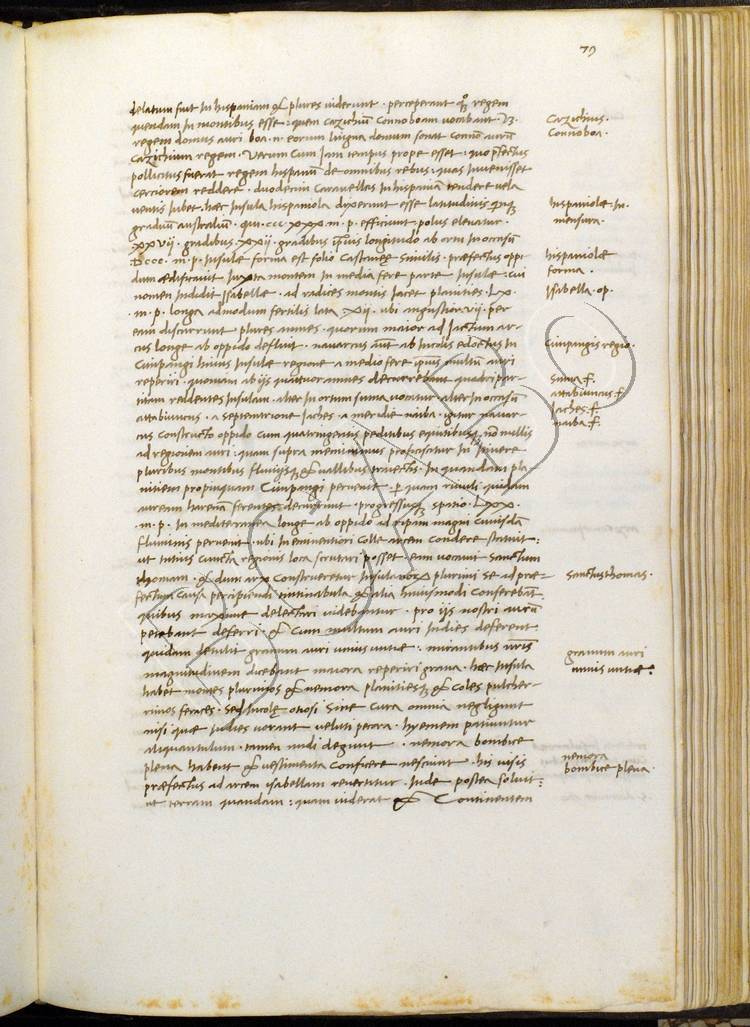 79
delatum fuit In hispaniam & plures uiderunt . perceperant regem
quendam In montibus esse : quem cazichium Connoboam uocabant
regem domus auri boa . n . eorum lingua domum sonat Conno aurum
Cazichium regem . Verum Cum Iam tempus prope esset : quo
pollicitus fuerat regem hispanum de omnibus rebus : quas Inuenisset
cerciorem reddere . duodecim Carauellas In hispaniam tendere uela
uentis Iubet . hæc Insula hispaniola dixerunt esse latitudinis
graduum australium . qui . ccc xxx m . p . efficiunt . polus eleuatur .
xxvij . gradibus . xxij . gradibus longitudo ab ortu In occasum
Dccc . m . p . Insulæ forma est folio Castaneæ Similis . præfectus oppi
dum ædificauit Iuxta montem In media fere parte Insulæ : cui
nomen Indidit Isabellæ . ad radices montis Iacet planities . Lx .
. m . p . longa admodum fertilis lata xij . ubi angustior . vij . per
eam discurrunt plures amnes . quorum maior ad Iactum ar-
cus longe ab oppido defluit . nauarcus aut ab Incolis edoctus In
Cimpangi huius Insulæ regione a medio fere multum auri
reperiri . quoniam ab ijs quatuor amnes quadripar-
titam reddentes Insulam . alter In ortum suma uocatur alter In occasum
attabiunicus . a septentrione Iaches . a meridie naiba . igitur nauar-
cus Constructo oppido Cum quatringentis peditibus equitibus nonnullis
ad regionem auri : quam supra memorauimus proficiscitur In Itinere
pluribus montibus fluuijsque & uallibus traiectis . In quandam pla
nitiem propinquam Cimpangi peruenit . per quam riuuli quidam
auream harenam ferentes decurrunt . progressusque spatio . Lxx .
. m . p . In mediterranea longe ab oppido ad ripam magni Cuiusdam
fluminis peruenit . ubi In eminentiori Colle arcem Condere statuit :
ut tutius cuncta regionis loca scrutari posset eam uocauit Sanctum
thomam . & dum arx Construeretur Insula plurimi Se ad præ-
fectum Causa percipiendi tintinabula & alia huiusmodi Conferebat .
quibus maxime delectari uidebantur . pro ijs nostri aurum
petebant deferri . & Cum multum auri Indies deferent
quidam detulit granum auri unius untiæ . mirantibus nostris
magnitudinem dicebant maiora reperiri grana . hæc Insula
habet montes plurimos & nemora planitiesque & coles pulcher-
rimos feraces . Sed Incolæ otiosi Sine cura omnia negligunt
nisi quæ Indies uorant ueluti pecora . hyemem patiuntur
aliquantulum . tamen nudi degunt . nemora bombice
plena habent & uestimenta Conficere nesciunt . his uisis
præfectus ad arcem isabellam reuertitur . Inde postea soluit :
ut terram quandam : quam uiderat & Continentem
Cazichius .
Connoboa .
hispaniolæ In .
mensura .
hispaniolæ
forma .
Isabella . op .
Cimpangis regio .
Suma . f .
attabiunicus . f .
Iaches . f .
naiba . f .
Sanctus thomas .
granum auri
unius untiæ .
nemora
bombice plena .